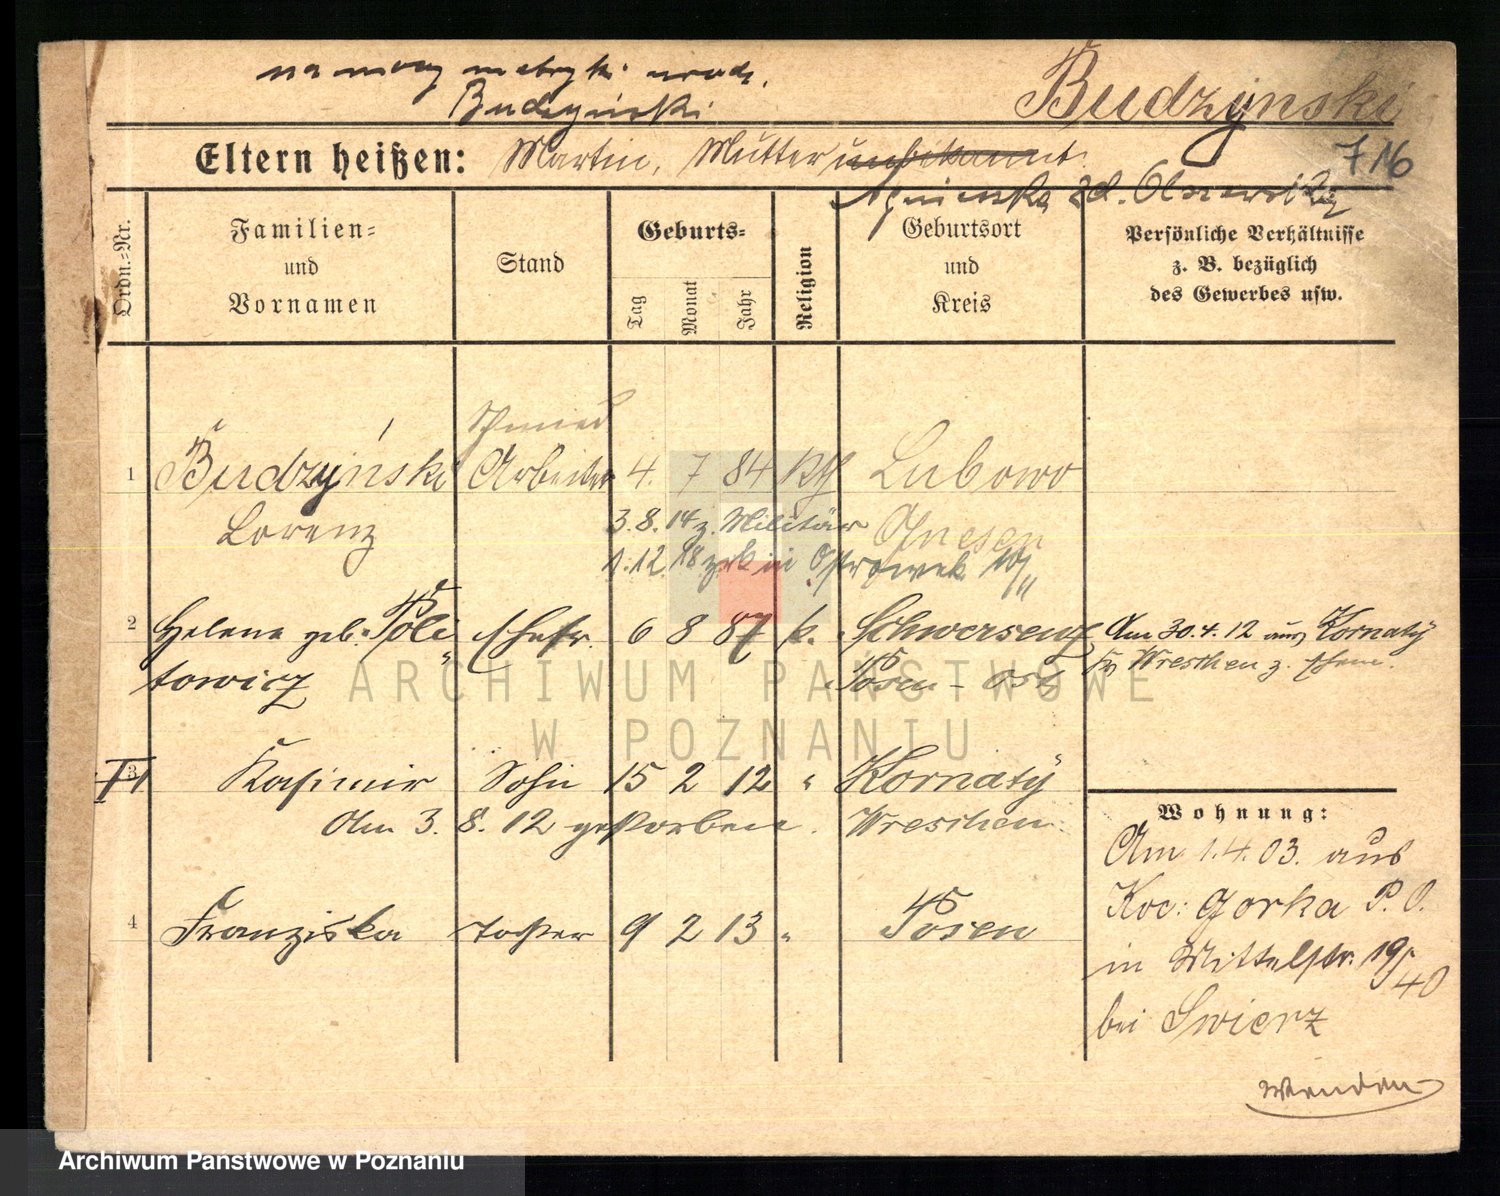 na mocy metryki urodz.
Budzyński
Budzynski
Eltern heißen: Martin, Mutter unbekannt.
716
Agnieszka zd. Olszewska
Ordn.-Nr.
Familien-
und
Vornamen
Stand
Geburts-
Tag
Monat
Jahr
Religion
Geburtsort
und
Kreis
Persönliche Verhältnisse
z. B. bezüglich
des Gewerbes usw.
Schmied
1 Budzyński Arbeiter 4. 7 84 kth Lubowo
Lorenz
Gnesen
3.8.14 z. Militär
1.12.18 zrk in Ostrowek 10/11
2 Helena geb. Poli Ehefr. 6 8 87 k. Schwersenz
towicz
Posen - Ost
Am 30.4.12 aus Kornaty
Kr. Wreschen z. Ehem.
3 Kasimir Sohn 15 2 12 " Kornaty
Am 3. 8. 12 gestorben. Wreschen.
4 Franziska Tochter 9 2 13 " Posen
Wohnung:
Am 1.4.03. aus
Koc: Gorka P. O.
in Mittelstr. 19/40
bei Swierz
Wenden
ARCHIWUM PAŃSTWOWE
W POZNANIU
Archiwum Państwowe w Poznaniu